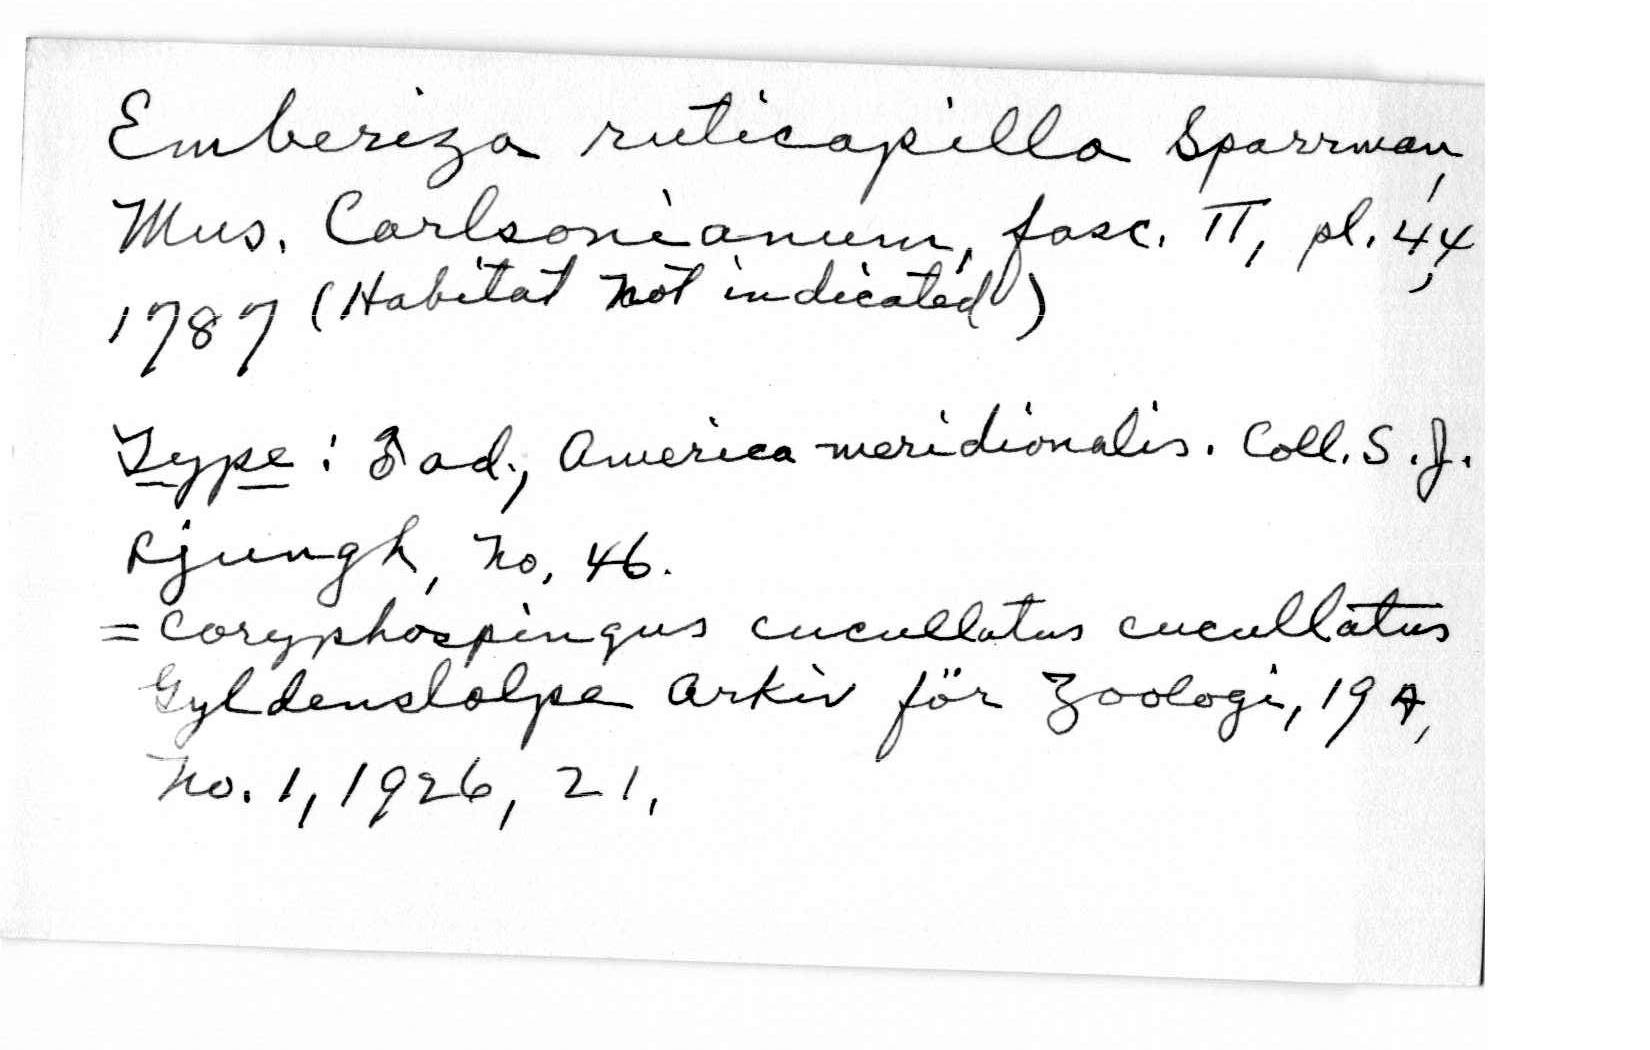 Emberiza ruticapilla Sparrman,
Mus. Carlsonianum, fasc. II, pl. 44,
1787 (Habitat not indicated)
Type: ♂ ad., America meridionalis. Coll. S. J.
Ljungh, No. 46.
= Coryphospingus cucullatus cucullatus
Gyldenstolpe Arkiv för Zoologi, 19 A,
No. 1, 1926, 21.